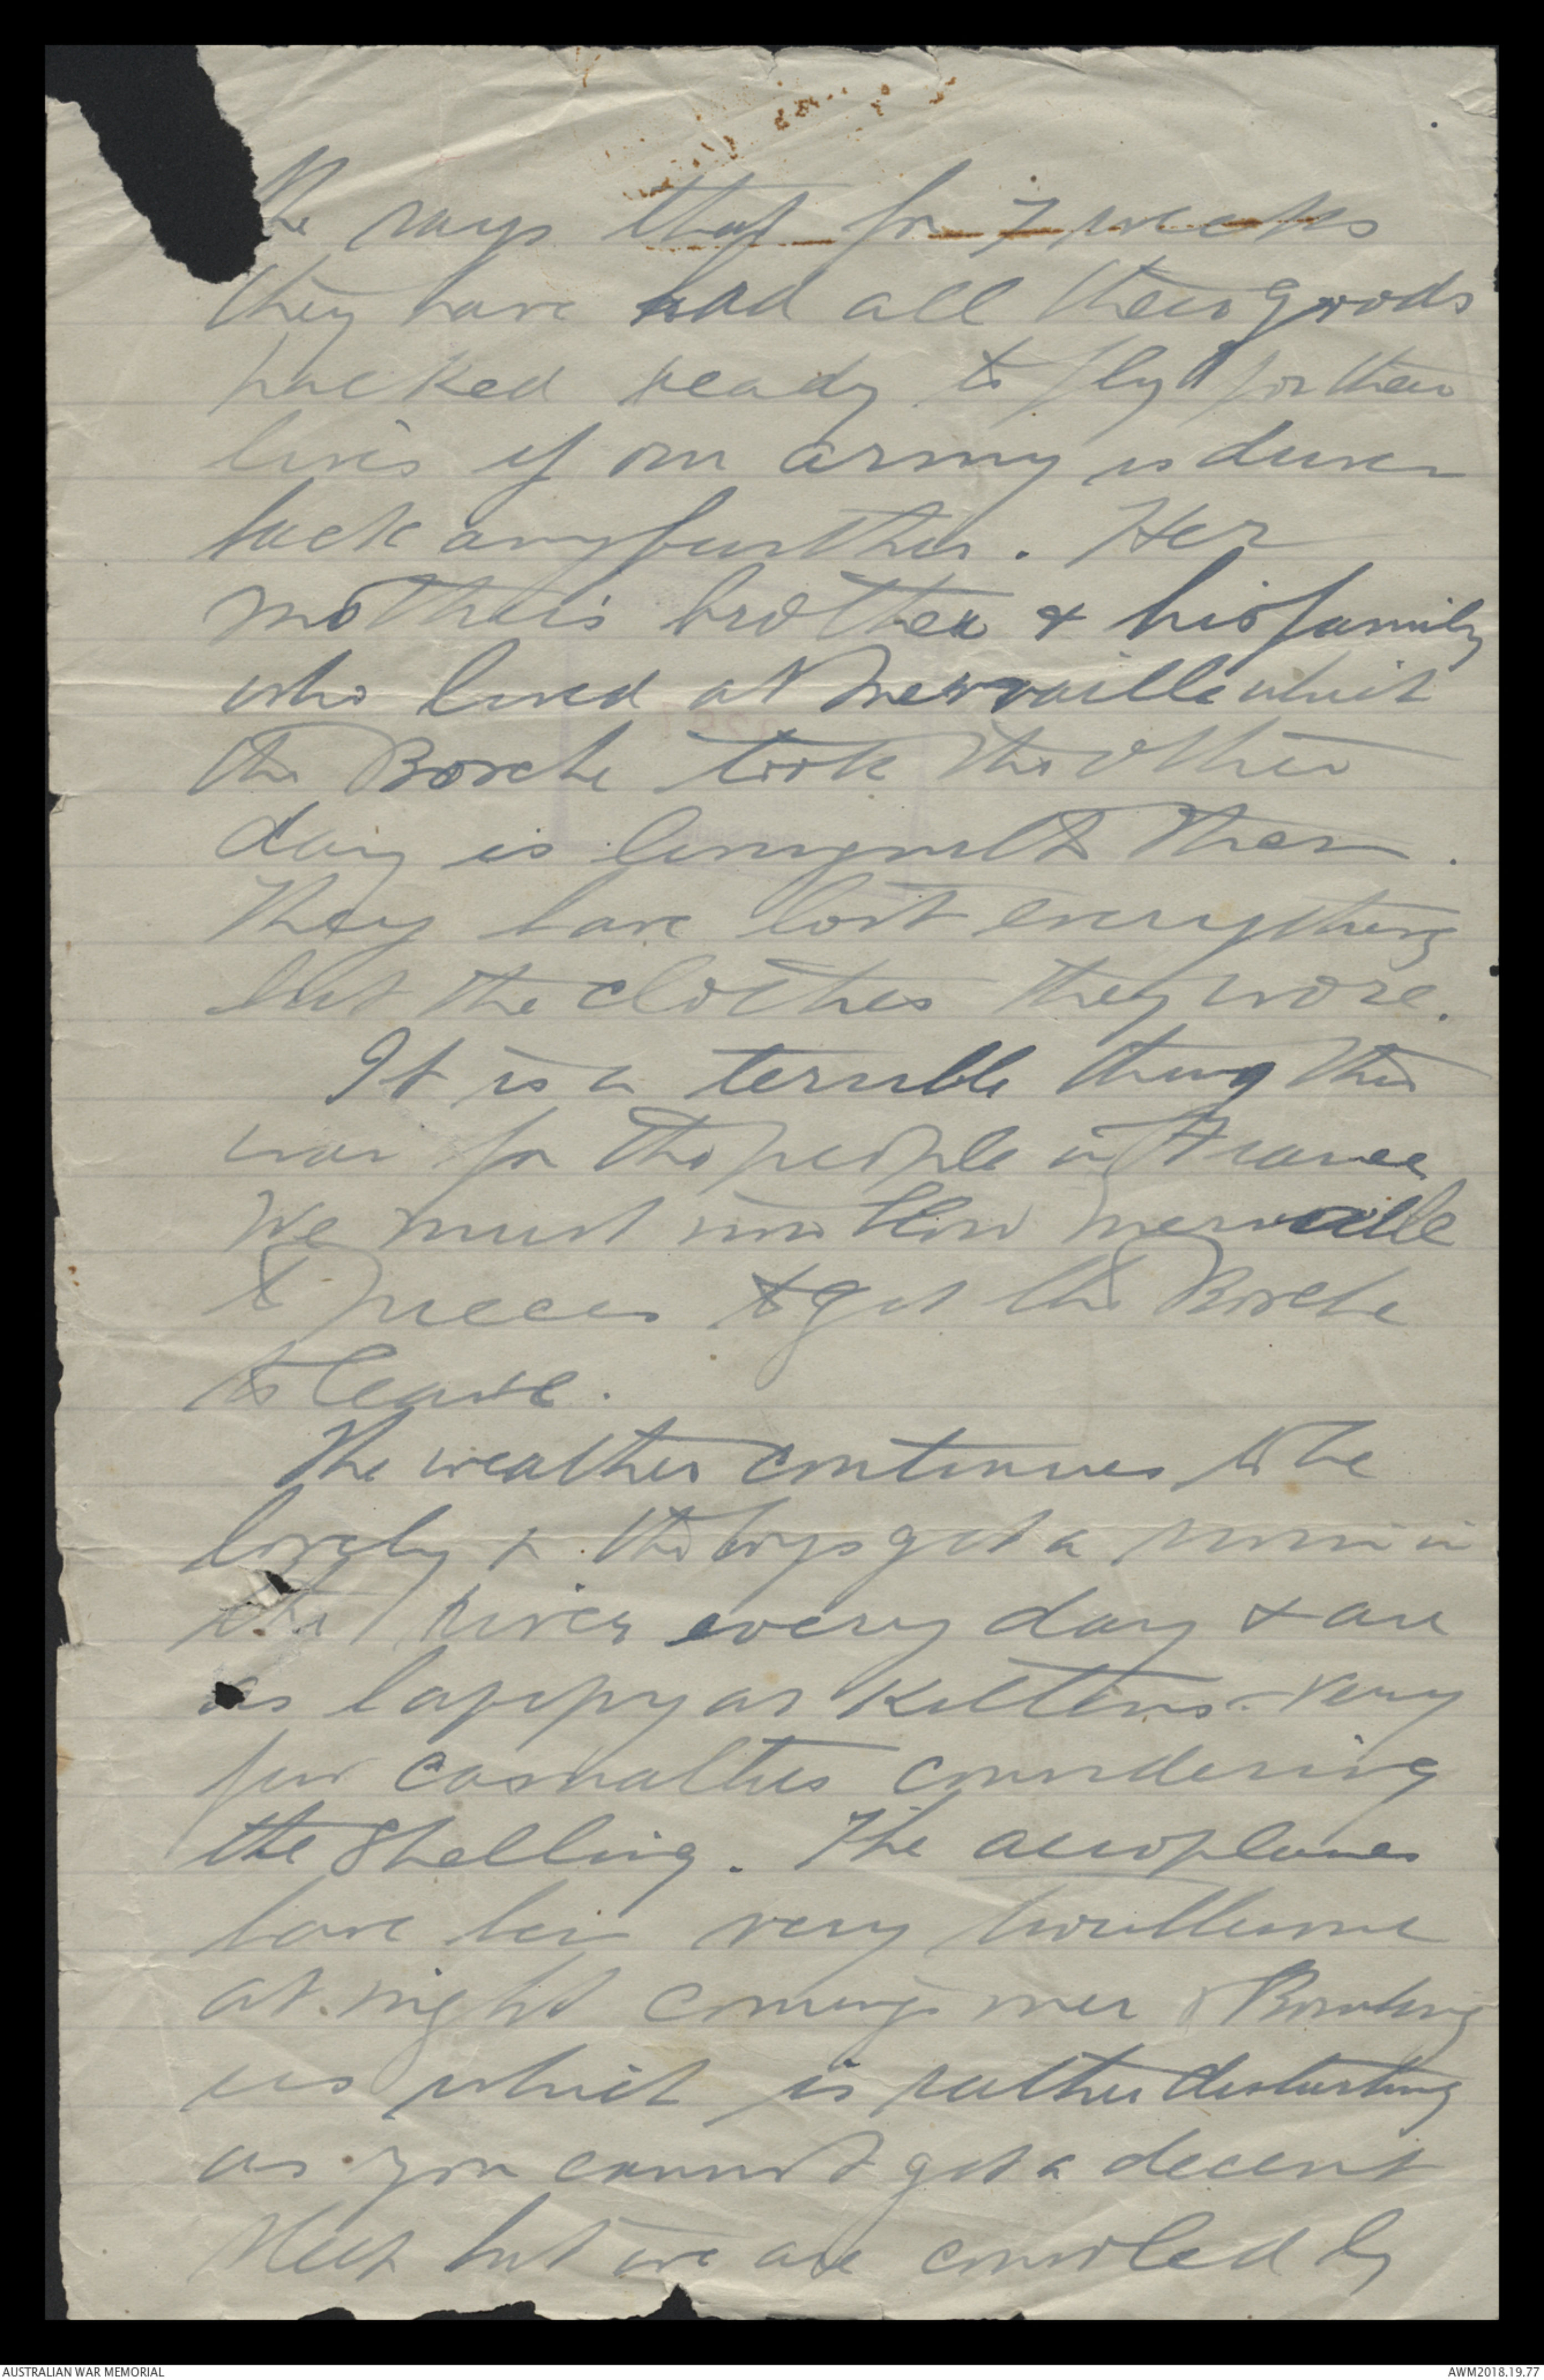 He says that for 7 weeks
they have had all their goods
packed ready to fly for their
lives if our army is driven
back any further. Her
mother's brother & his family
who lived at Merville which
the Bosche took the other
day is living with them.
They have lost everything
but the clothes they wore.
It is a terrible thing this
war for the people in France
We must now blow Merville
to pieces to get the Bosche
to leave.
The weather continues to be
lovely & the boys get a swim in
the river every day & are
as happy as kittens. very
few casualties considering
the Shelling. The aeroplanes
have been very troublesome
at night coming over & Bombing
us which is rather disturbing
as you cannot get a decent
sleep but we are consoled by
AUSTRALIAN WAR MEMORIAL
AWM2018.19.77